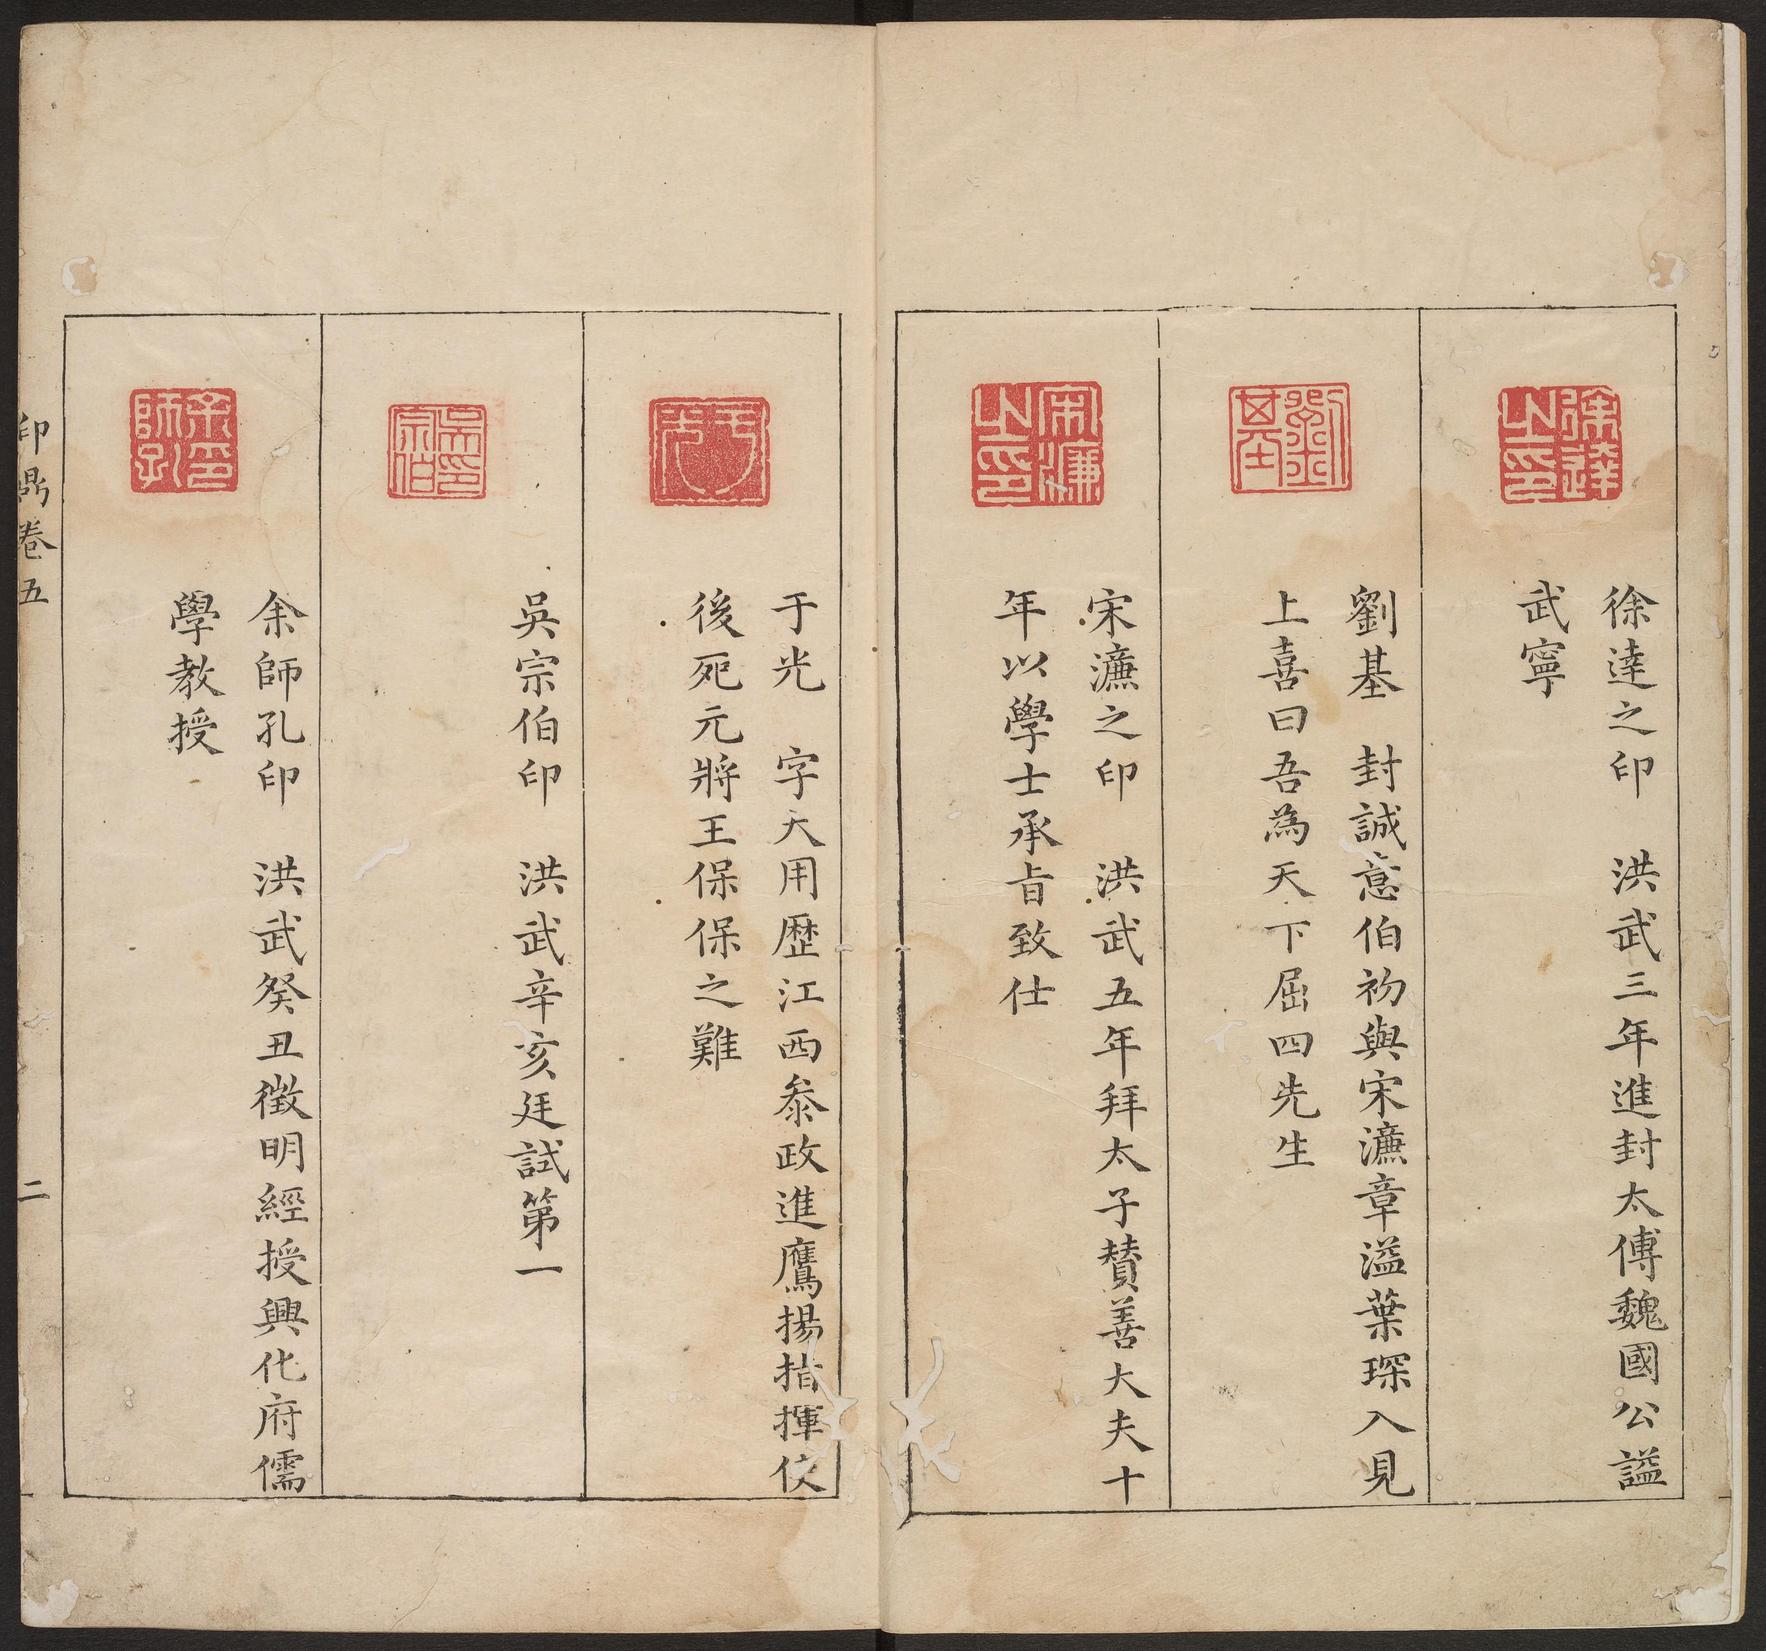 徐達之印
徐達之印　洪武三年進封太傅魏國公謚
武寧
劉基
劉基　封誠意伯初與宋濂章溢葉琛入見
上喜曰吾為天下屈四先生
宋濂之印
宋濂之印　洪武五年拜太子贊善大夫十
年以學士承旨致仕
于光
于光　字大用歷江西叅政進鷹揚指揮使
後死元將王保保之難
吳宗伯印
吳宗伯印　洪武辛亥廷試第一
余師孔印
余師孔印　洪武癸丑徵明經授興化府儒
學教授
印鼎卷五
二